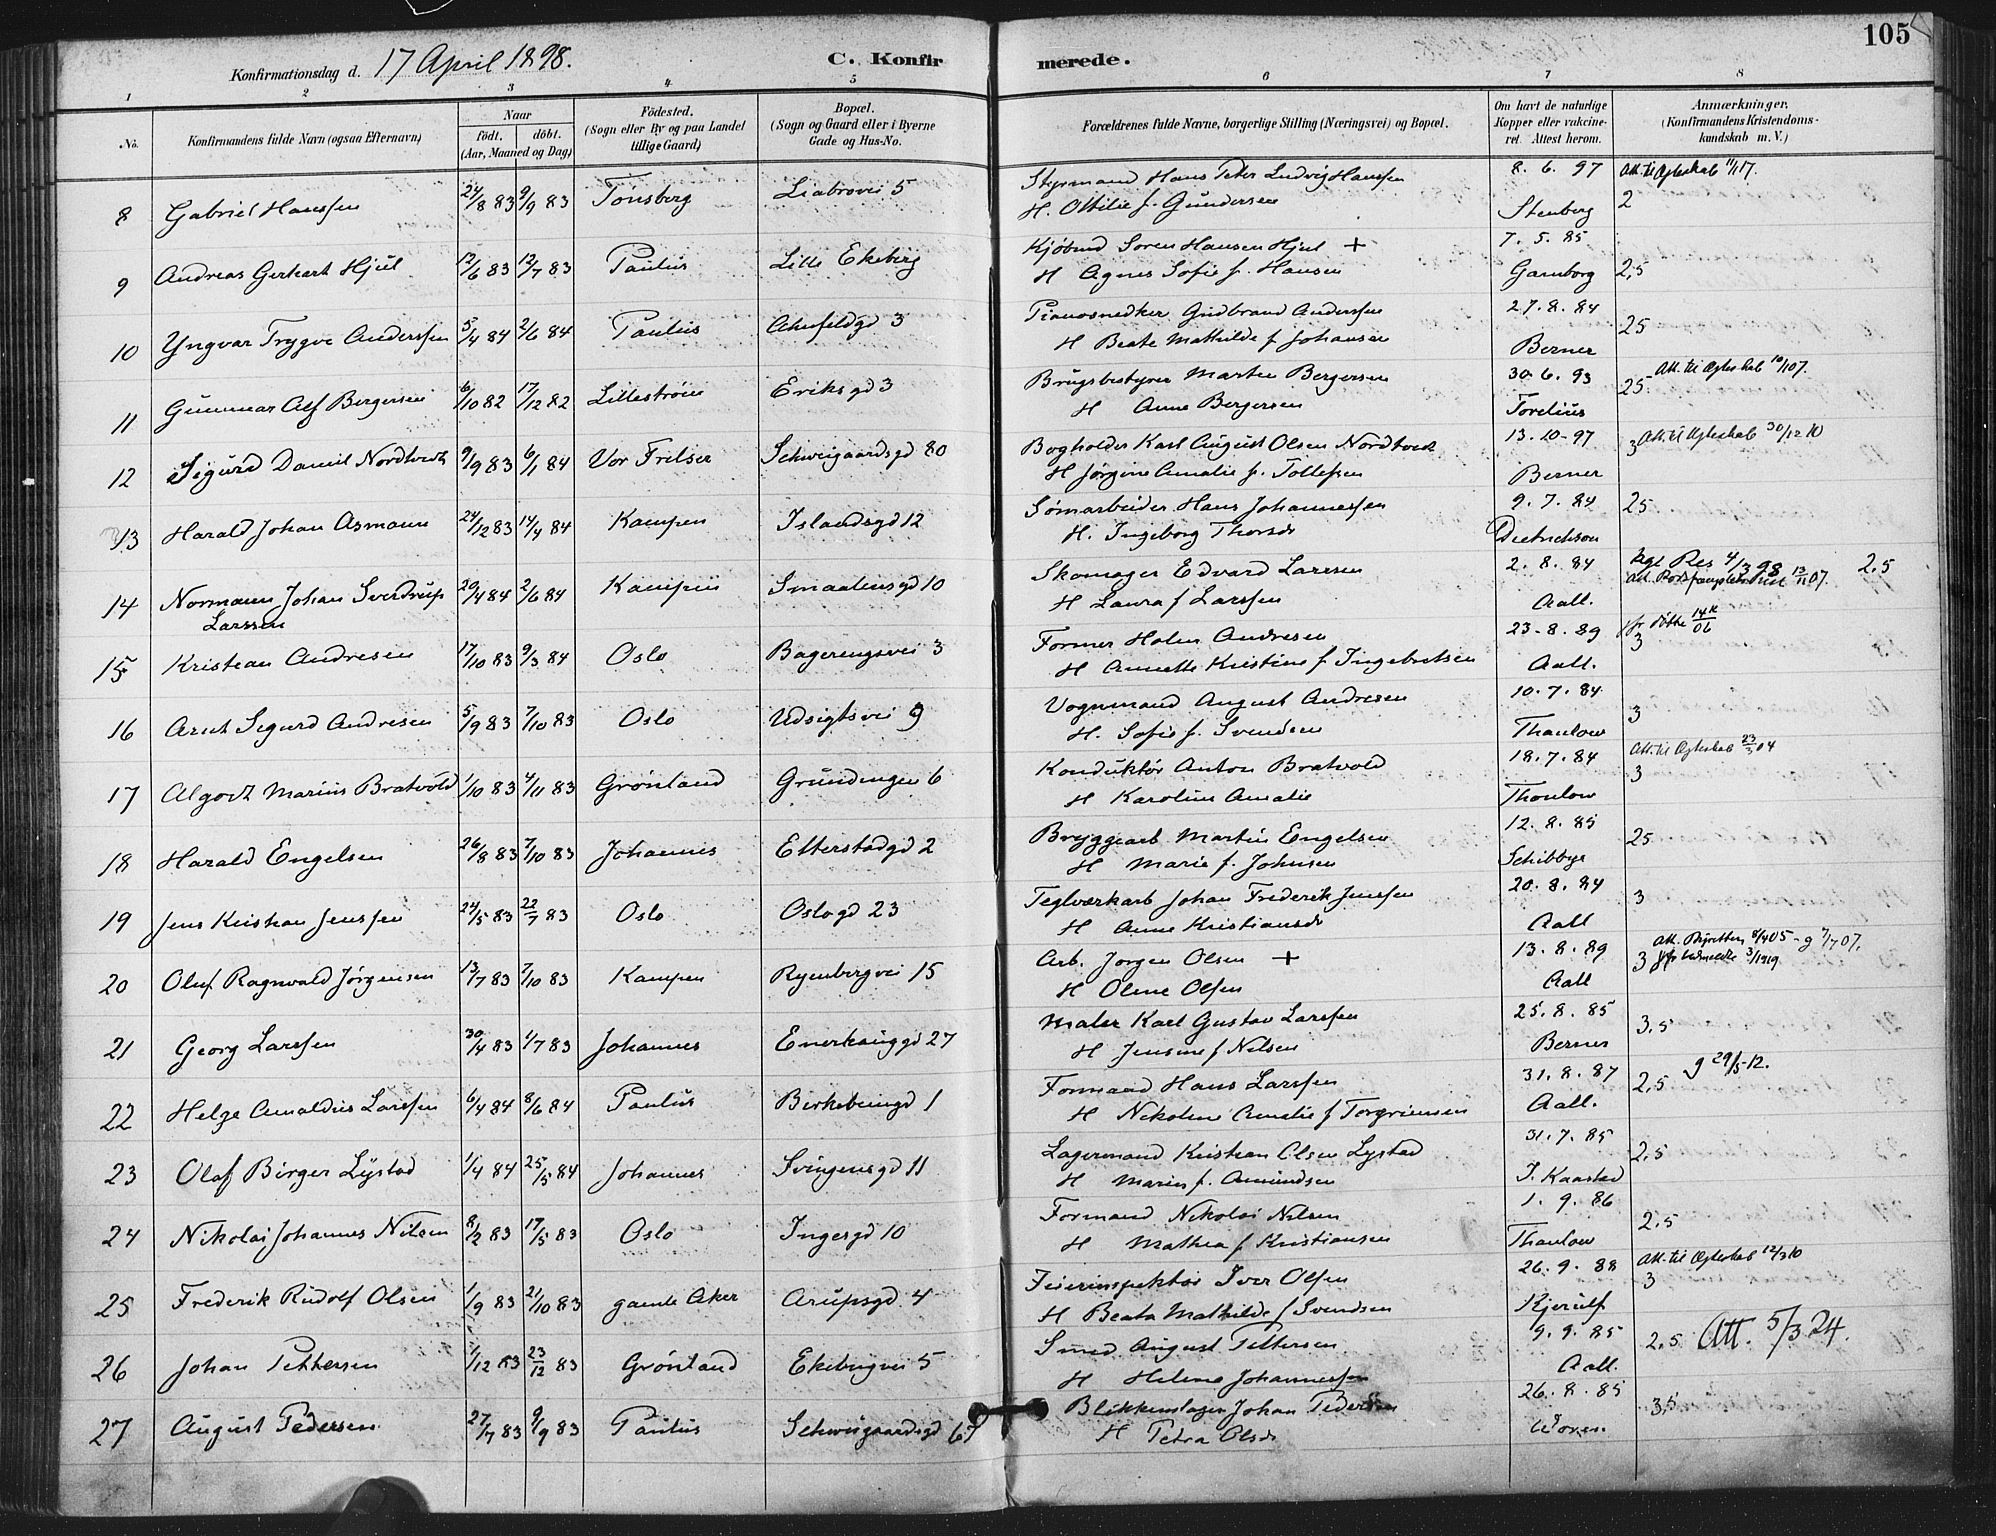 105
Konfirmationsdag d. 17 April 1898.
C. Konfirmerede.
1 2 3 4 5 6 7 8
No.
Konfirmandens fulde Navn (ogsaa Efternavn)
Naar
født. døbt.
(Aar, Maaned og Dag)
Födested.
(Sogn eller By og paa Landet tillige Gaard)
Bopæl.
(Sogn og Gaard eller i Byerne Gade og Hus-No.
Forældrenes fulde Navne, borgerlige Stilling (Næringsvei) og Bopæl.
Om havt de naturlige Kopper eller vakcineret. Attest herom.
Anmærkninger.
(Konfirmandens Kristendomskundskab m. V.)
8 Gabriel Hanssen 24/8 83 9/9 83 Tönsberg Liabrovei 5 Styrmand Hans Peter Ludvig Hanssen 8. 6. 97 Att. til Ægteskab 11/1 17.
H. Ottilie f. Gundersen Stenberg 2
9 Andreas Gerhart Hjul 12/6 83 12/7 83 Paulus Lille Ekeberg Kjöbmd Soren Hansen Hjul + 7. 5. 85
H Agnes Sofie f. Hansen Garnborg 2,5
10 Yngvar Trygve Anderssen 5/4 84 2/6 84 Paulus gd 3 Pianosnedker Gudbrand Anderssen 27. 8. 84 25
H Beate Mathilde f Johansen Berner
11 Gunnar Alf Bergersen 6/10 82 17/12 82 Lillestrøm Eriksgd 3 Brugsbestyrer Martin Bergersen 30. 6. 93 25. Att. til Ægteskab 10/1 07.
H Anne Bergersen Torelius
12 Sigurd Daniel Nordtvedt 9/9 83 6/1 84 Vor Frelser Schweigaardsgd 80 Bogholder Karl August Olsen Nordtvedt 13. 10-97 3 Att. til Ægteskab 30/12 10
H Jörgine Amalie f. Tollefsen Berner
13 Harald Johan Asmann 24/12 83 14/4 84 Kampen Islandsgd 12 Sömarbeider Hans Johannessen 9. 7. 84 25
H. Ingeborg Thorsdr Dietrichson
14 Normann Johan Sverdrup Larssen 20/4 84 2/6 84 Kampen Smaalensgd 10 Skomager Edvard Larssen 2. 8. 84 kgl Res 4/3 98 2,5
H Laura f Larssen Aall.
15 Kristian Andresen 17/10 83 9/3 84 Oslo Bagerengsvei 3 Former Holm Andresen 23-8. 89 3
H Annette Kristine f Ingebretsen Aall.
16 Arnt Sigurd Andresen 5/9 83 7/10 83 Oslo Udsigtsvei 9 Vognmand August Andresen 10. 7. 84 3
H. Sofie f. Svendsen Thaulow
17 Algodt Marius Bratvold 1/10 83 4/11 83 Grönland Gründingen 6 Konduktör Anton Bratvold 18. 7. 84 Att. til Ægteskab 23/3 04
H Karoline Amalie Thaulow 3
18 Harald Engelsen 26/8 83 7/10 83 Johannes Etterstadgd 2 Bryggearb Martin Engelsen 12. 8. 85 25
H Marie f. Johnsen Schibbye
19 Jens Kristian Jenssen 24/5 83 22/7 83 Oslo Oslogd 23 Teglværkarb Johan Frederik Jenssen 20. 8. 84 3
H Anne Kristiansdr Aall
20 Oluf Ragnvald Jörgensen 13/7 83 7/10 83 Kampen Ryenbergvei 15 Arb. Jörgen Olsen + 13. 8. 89 3 Att. Byretten 8/4 05 - g 7/7 07.
H Oline Olsen Aall
21 Georg Larssen 30/4 83 1/7 83 Johannes Enerhauggd 27 Maler Karl Gustav Larssen 25. 8. 85 3,5
H Jensine f Nilsen Berner
22 Helge Arnaldus Larssen 6/4 84 8/6 84 Paulus Birkebeingd 1 Formand Hans Larssen 31. 8. 87 2,5 g 29/5-12.
H Nikoline Amalie f Torgrimsen Aall.
23 Olaf Birger Lystad 1/4 84 25/5 84 Johannes Svingensgd 11 Lagermand Kristian Olsen Lystad 31. 7. 85 2,5
H Marie f. Amundsen I. Kaarstad
24 Nikolai Johannes Nilsen 8/2 83 17/5 83 Oslo Ingesgd 10 Formand Nikolai Nilsen 1. 9. 86 2,5
H Mathea f Kristiansen Thaulow
25 Frederik Rudolf Olsen 1/9 83 21/10 83 gamle Aker Arupsgd 4 Feierinspektör Iver Olsen 26. 9. 88 Att. til Ægteskab 12/3 10
H Beata Mathilde f Svendsen Kjerulf 3
26 Johan Pettersen 1/12 83 23/12 83 Grönland Ekebergvei 5 Smed August Pettersen 9. 9. 85 2,5 Att. 5/3 24.
H Helene Johannessen Aall.
27 August Pedersen 27/7 83 9/9 83 Paulus Schweigaardsgd 67 Blikkenslager Johan Pedersen 26. 8. 85 3,5
H Petra Olsdr